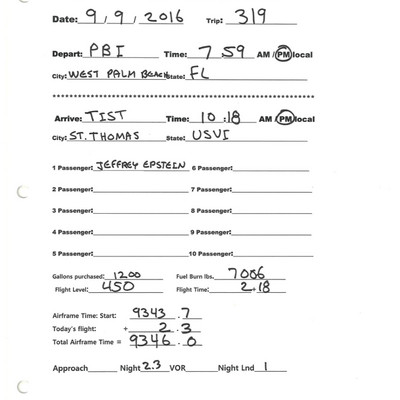 Date: 9/9/2016 Trip: 319
Depart: PBI Time: 7 59 AM / PM local
City: WEST PALM BEACH State: FL
Arrive: TIST Time: 10:18 AM PM local
City: ST. THOMAS State: USVI
1 Passenger: JEFFREY EPSTEIN 6 Passenger:
2 Passenger: 7 Passenger:
3 Passenger: 8 Passenger:
4 Passenger: 9 Passenger:
5 Passenger: 10 Passenger:
Gallons purchased: 1200 Fuel Burn lbs. 7006
Flight Level: 450 Flight Time: 2+18
Airframe Time: Start: 9343.7
Today's flight: + 2.3
Total Airframe Time = 9346.0
Approach Night 2.3 VOR Night Lnd 1